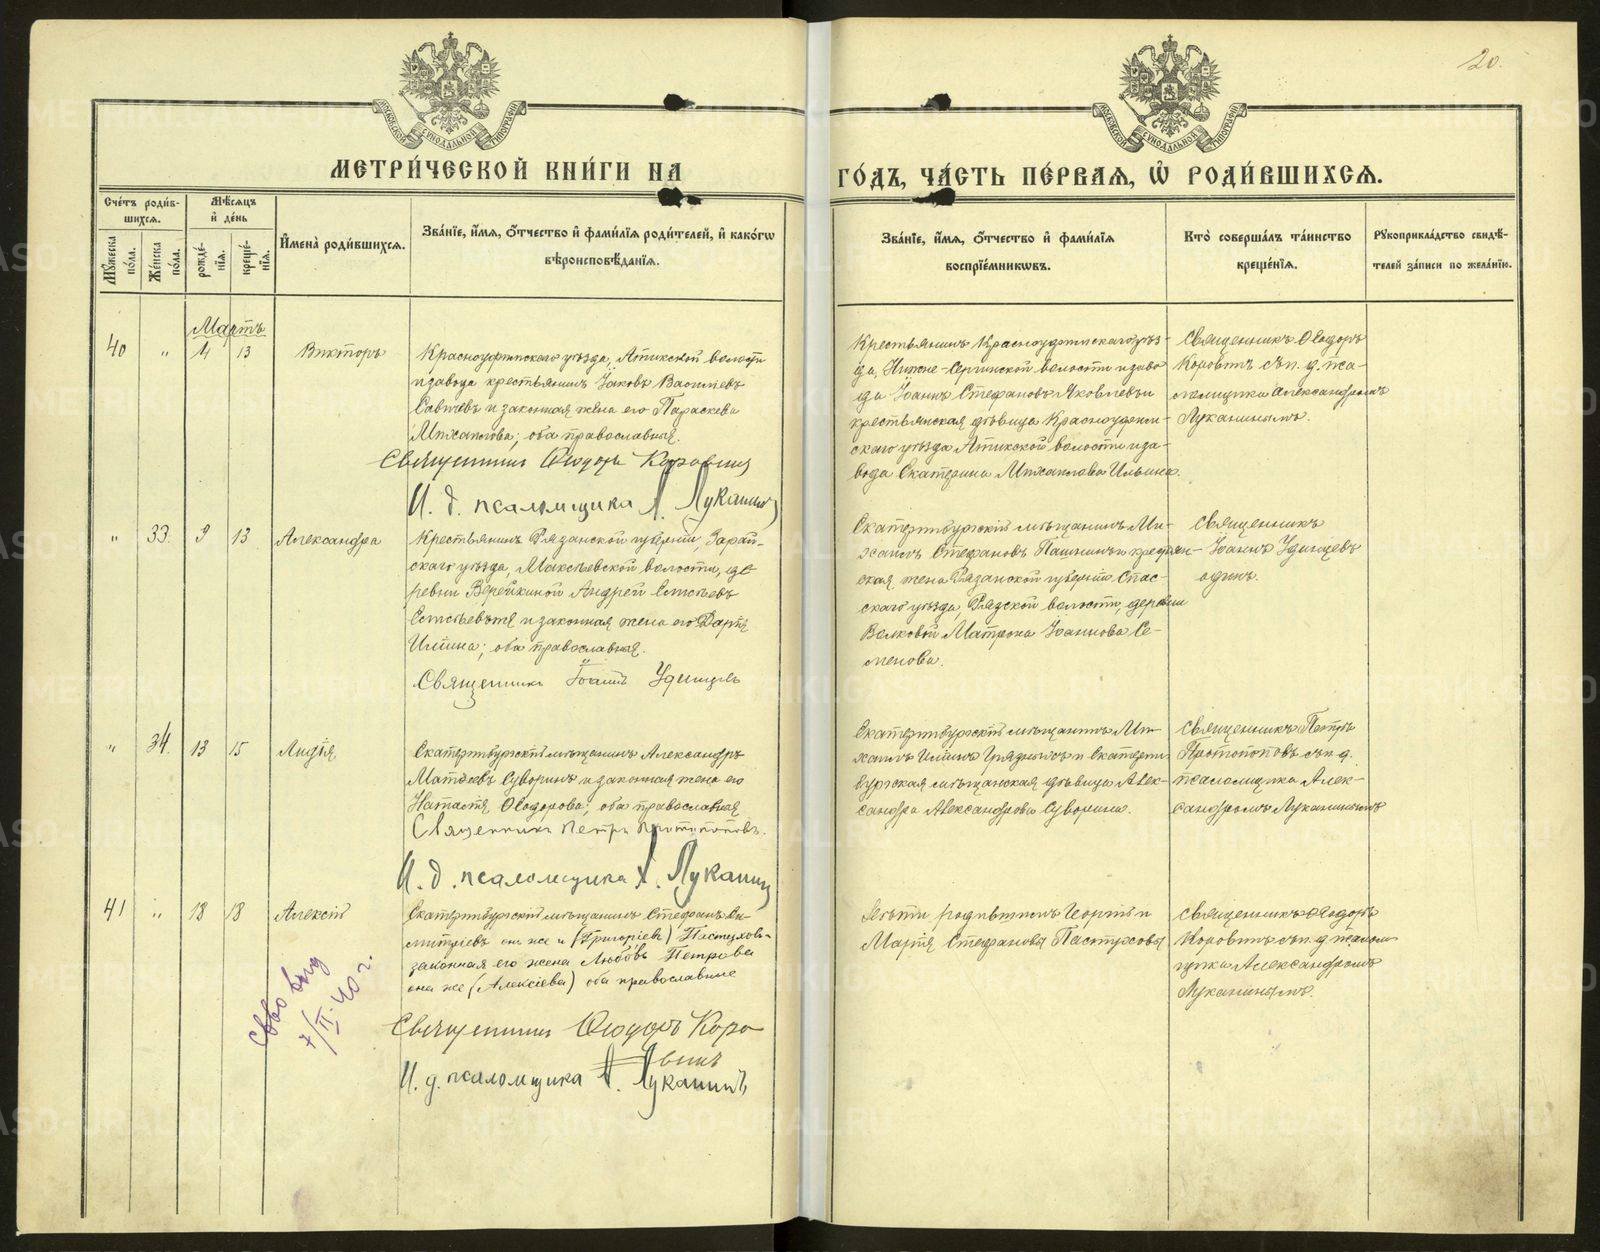 20.
МЕТРИ́ЧЕСКОЙ КНИ́ГИ НА
ГОДЪ, ЧА́СТЬ ПЕ́РВАЯ, Ѡ҆ РОДИ́ВШИХСЯ.
Сче́тъ роди́в-
шихся.
Му́жеска по́ла.
Же́нска по́ла.
Мѣ́сяцъ
и҆ де́нь
рожде́-
нїя.
креще́-
нїя.
И҆мена̀ роди́вшихся.
Зва́нїе, и҆́мя, ѻ҆́тчество и҆ фами́лїя роди́телей, и҆ како́гѡ
вѣроисповѣ́данїя.
Зва́нїе, и҆́мя, ѻ҆́тчество и҆ фами́лїя
воспрїе́мникѡвъ.
Кто̀ соверша́лъ та́инство
креще́нїя.
Рꙋкоприкла́дство свидѣ́-
телей за́писи по жела́нїю.
Мартъ
40 " 4 13 Викторъ
Красноуфимскаго уѣзда, Атигской волости
и завода крестьянинъ Іаковъ Василіевъ
Савичевъ и законная жена его Параскева
Михаилова; оба православныя.
Священникъ Ѳеодоръ Коровинъ
И. д. псаломщика А. Луканинъ
Крестьянинъ Красноуфимскаго уѣз-
да, Нижне-Сергинской волости и заво-
да Іоаннъ Стефановъ Яковлевъ и
крестьянская дѣвица Красноуфим-
скаго уѣзда Атигской волости и за-
вода Екатерина Михаилова Ильина.
Священникъ Ѳеодоръ
Коровинъ съ и. д. пса-
ломщика Александромъ
Луканинымъ.
" 33. 9 13 Александра
Крестьянинъ Рязанской губерніи, Зарай-
скаго уѣзда, Макѣевской волости, де-
ревни Верейкиной Андрей Евсѣевъ
и законная жена его Дарія
Илiина; оба православныя.
Священникъ Іоаннъ Удинцевъ
Екатеринбургскій мѣщанинъ Ми-
хаилъ Стефановъ Пашнинъ и крестьян-
ская жена Рязанской губерніи Спас-
скаго уѣзда, волости, деревни
Волковой Матрона Іоаннова Се-
менова.
Священникъ
Іоаннъ Удинцевъ
одинъ.
" 34. 13 15 Лидія
Екатеринбургскій мѣщанинъ Александръ
Матѳеевъ Суворинъ и законная жена его
Наталія Ѳеодорова; оба православныя
Священникъ Петръ Протопоповъ.
И. д. псаломщика А. Луканинъ
Екатеринбургскій мѣщанинъ Ми-
хаилъ Илiинъ и Екатерин-
бургская мѣщанская дѣвица Алек-
сандра Александрова Суворина.
Священникъ Петръ
Протопоповъ съ и. д.
псаломщика Алек-
сандромъ Луканинымъ
41 " 18 18 Алексій
Екатеринбургскій мѣщанинъ Стефанъ Ди-
митріевъ онъ же и (Григоріевъ) Пастуховъ
законная его жена Любовь Петрова
она же (Алексіева) оба православные
Священникъ Ѳеодоръ Коро-
винъ
И. д. псаломщика А. Луканинъ
Дѣти родившихъ Георгій и
Марія Стефановы Пастуховы
Священникъ Ѳеодоръ
Коровинъ съ и. д. псалом-
щика Александромъ
Луканинымъ.
7/II-40 г.
METRIKI.GASO-URAL.RU